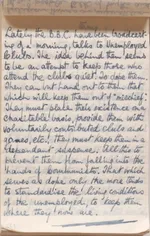 Lately the B.B.C. have been broadcast-
ing of a morning, talks to Unemployed
Clubs. The idea behind them seems
to be an attempt to keep those who
attend the clubs quiet. So dope them.
They can but hand out to them that
which will keep them out of "mischief".
They must make their existence on
Charitable basis, provide them with
voluntarily contributed clubs and
games etc! They must keep them in a
dependant existence. All this to
prevent them from falling into the
hands of Communists. That which
serves as dope only the more than
to standardise the living conditions
of the unemployed, to keep them
where they now are.